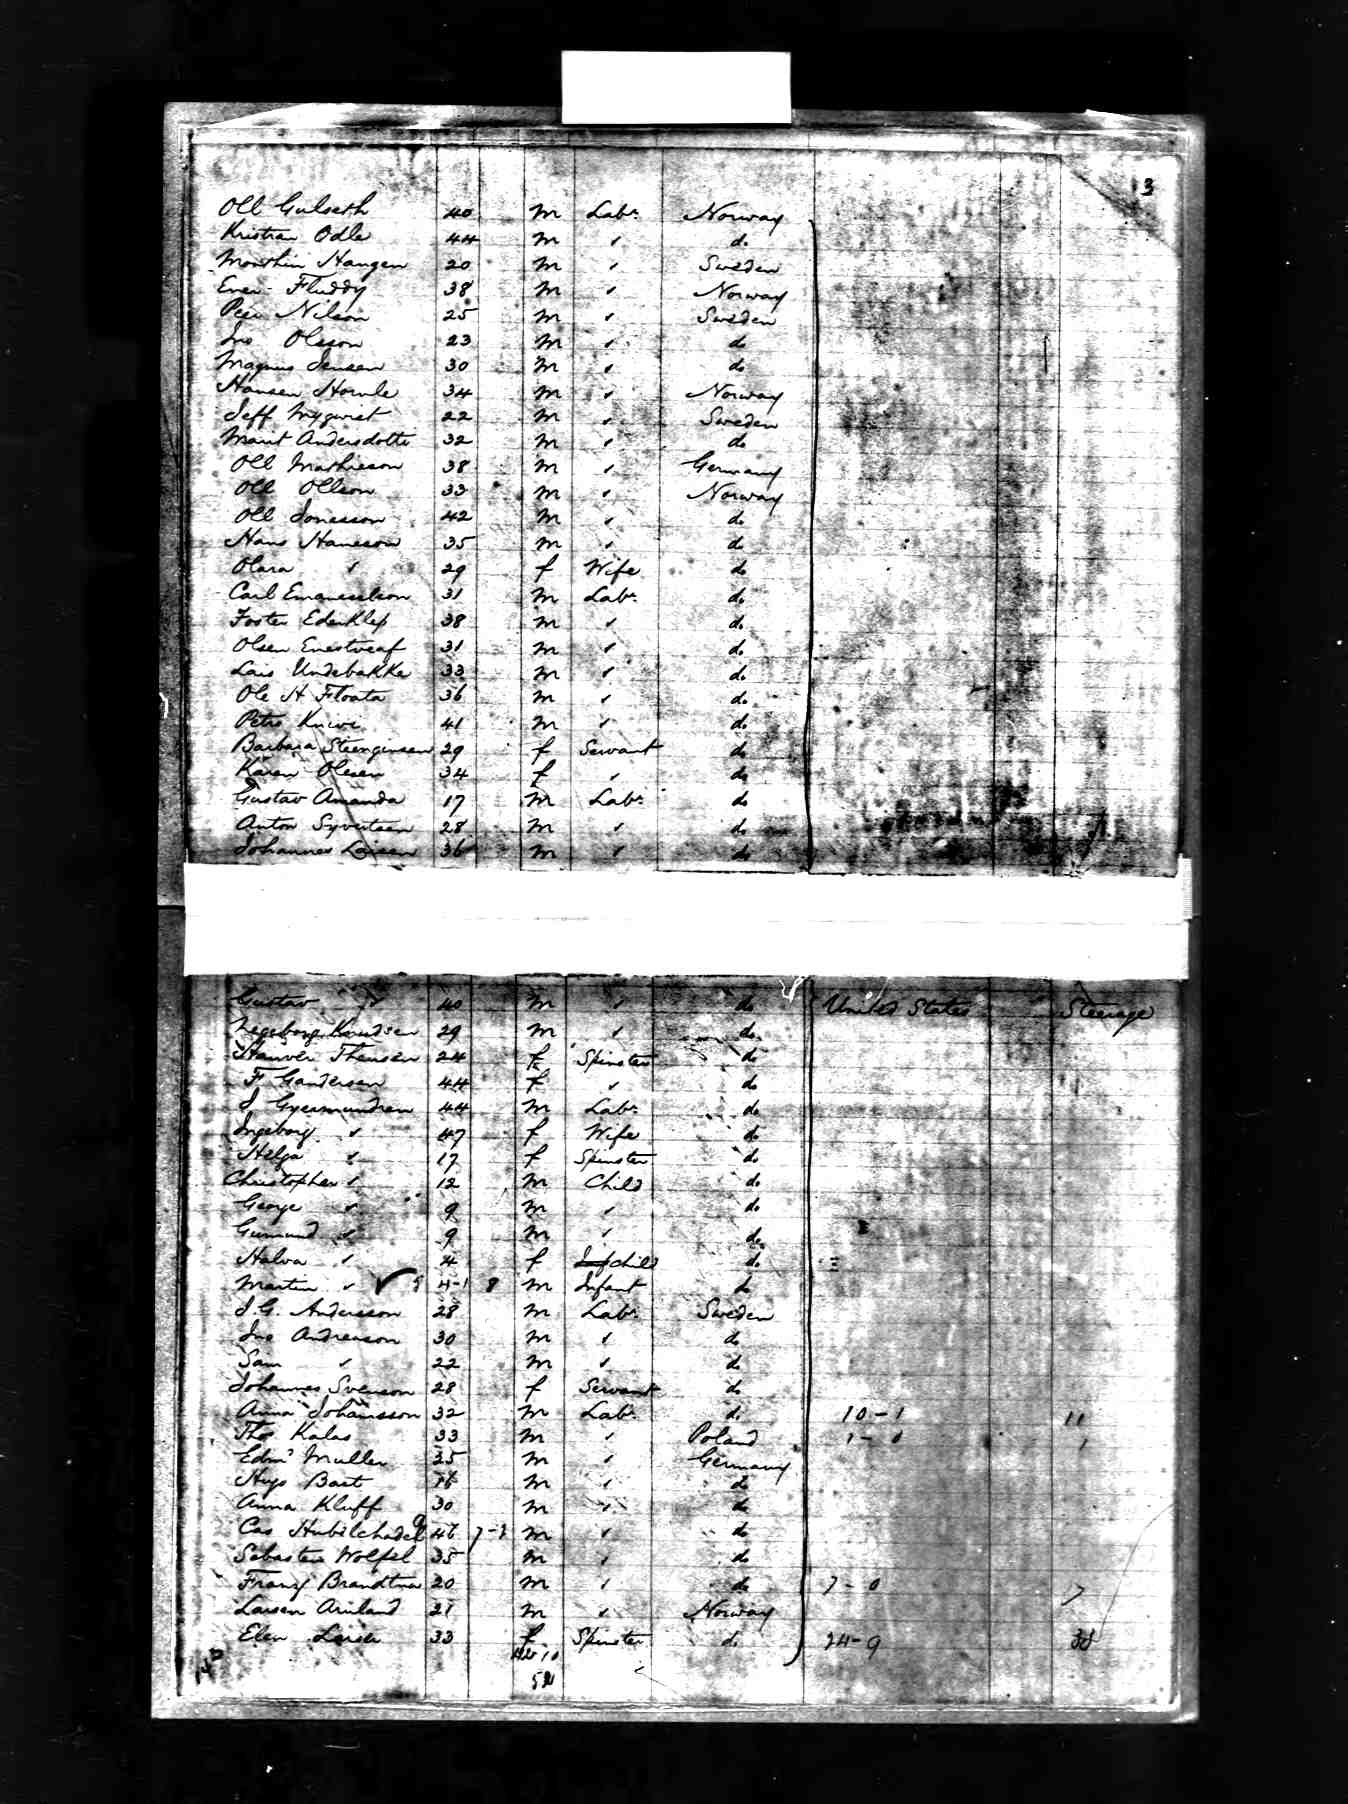 3
Oll Gulseth 40 m Labr. Norway
Kristian Odle 44 m " do
Morthin Haugen 20 m " Sweden
Even Fluddy 38 m " Norway
Peer Nilson 25 m " Sweden
Jno Olsson 23 m " do
Magnus Jensen 30 m " do
Hansen Hornle 34 m " Norway
Jeff Myqwist 22 m " Sweden
Marit Andersdotte 32 m " do
Oll Mathieson 38 m " Germany
Oll Ollson 33 m " Norway
Oll Jonesson 42 m " do
Hans Hansson 35 m " do
Olara " 29 f Wife do
Carl Emanuelson 31 m Labr. do
Foster Edenklep 38 m " do
Olsen Enestveaf 31 m " do
Lars Undebakke 33 m " do
Ole H Floata 36 m " do
Petro 41 m " do
Barbara Steengensen 29 f Servant do
Karen Olesen 34 f " do
Gustav Amanda 17 m Labr. do
Anton Syvertsen 28 m " do
Johannes Larsen 36 m " do
Gustav " 40 m " do United States Steerage
Ingeborg Knudsen 29 m " do
Thensen 24 f Spinster do
F Gandersen 44 f " do
J Gyermundsen 44 m Labr. do
Ingeborg " 47 f Wife do
Helga " 17 f Spinster do
Christopher " 12 m Child do
George " 9 m " do
Gumund " 9 m " do
Halva " 4 f child do
Martin " 8 m Infant do
J. G. Andersson 28 m Labr. Sweden
Jno Andreason 30 m " do
Sam " 22 m " do
Johannes Svenson 28 f Servant do
Anna Johansson 32 m Labr. do 10-1 11
Thos Kalas 33 m " Poland 1-0 1
Edmd Muller 25 m " Germany
Hugo Bast 16 m " do
Anna Kluff 30 m " do
Cas 46 7-1 m " do
Sebasten Wolfel 35 m " do
Franz Brandtner 20 m " do 7-0 7
Larsen Aniland 21 m " Norway
Elen Larsen 33 f Spinster do 24-9 33
10
52